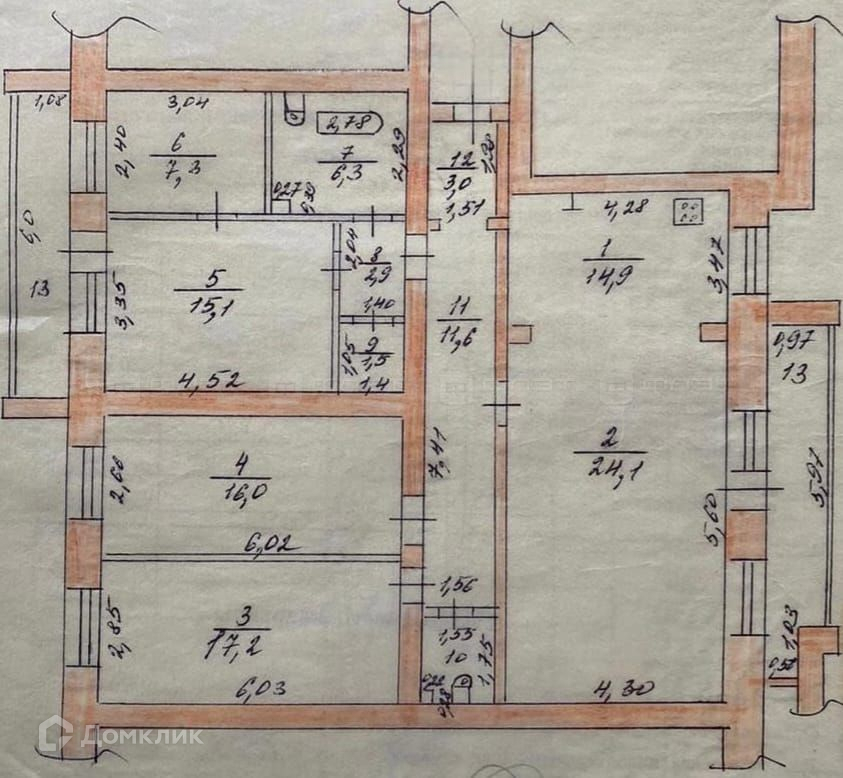 1,08
3,04
2,40
6
7,3
2,78
7
6,3
2,29
0,27
12
3,0
1,51
4,28
1
14,9
3,47
6,0
13
3,35
5
15,1
4,52
2,04
8
2,9
1,40
9
1,5
1,05
1,4
11
11,6
7,41
0,97
13
2
24,1
5,60
5,97
2,66
4
16,0
6,02
2,85
3
17,2
6,03
1,56
1,55
10
1,75
4,30
1,03
Домклик